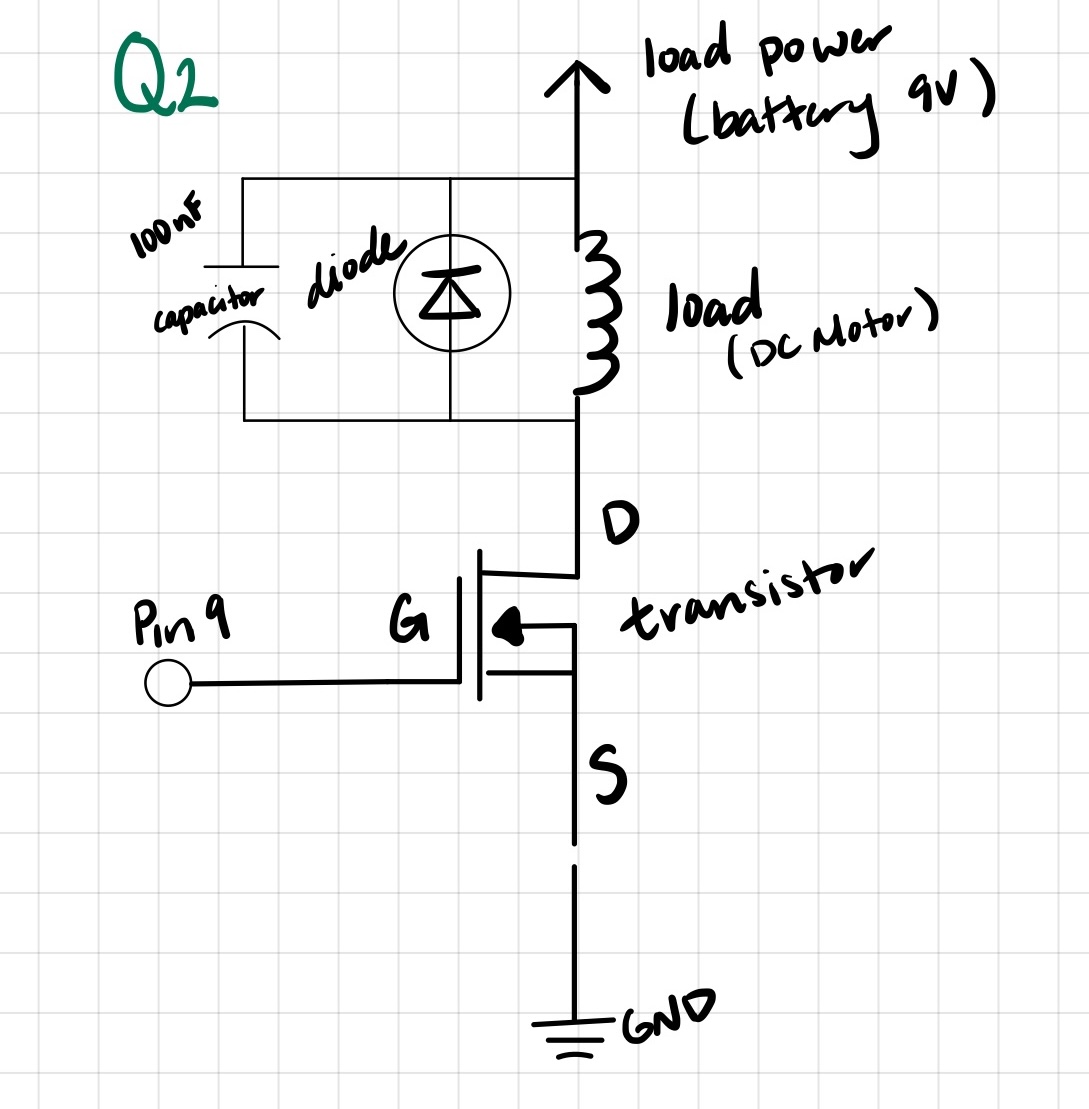 Q2
load power
(battery 9V)
100nF
capacitor
diode
load
(DC Motor)
D
Pin 9
G
transistor
S
GND